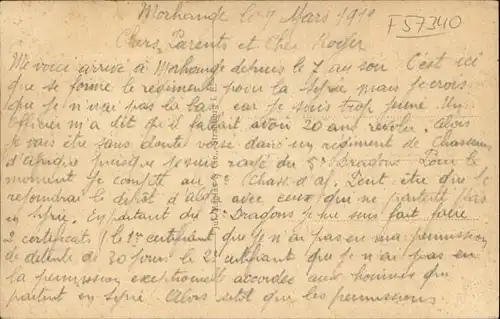 Morhange le 9 Mars 19
F57340
Chers Parents et Cher Roger
Me voici arrivé à Morhange depuis le 7 au soir. C'est ici
que se forme le régiment pour la Syrie mais je crois
que je n'irai pas là bas car je suis trop jeune. Un
officier m'a dit qu'il fallait avoir 20 ans révolu. Alors
je vais être sans doute versé dans un régiment de Chasseurs
d'afrique puisque je suis rayé du Dragons. Pour le
moment je compte au Chass. d'af. Peut être que je
rejoindrai le dépôt d' avec ceux qui ne partent pas
en Syrie. En partant du Dragons je me suis fait faire
2 certificats le 1er certifiant que je n'ai pas eu ma permission
de détente de 20 jours le 2e certifiant que je n'ai pas eu
la permission exceptionnelle accordée aux hommes qui
partent en Syrie. Alors sitôt que les permissions